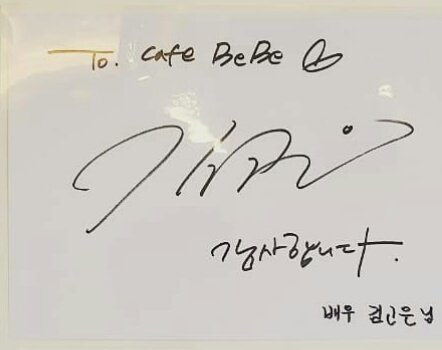 To. cafe BeBe
감사합니다.
배우 김고은님